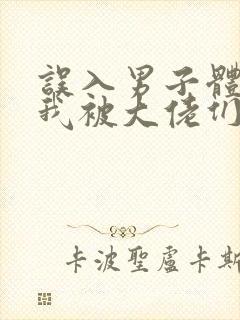 誤入男子體
我被大佬们
卡波聖盧卡斯